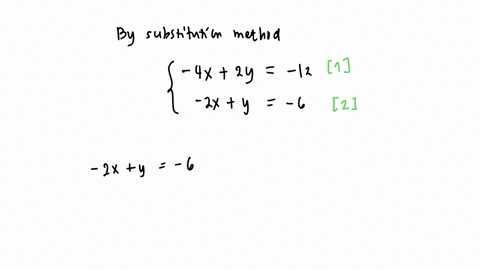 By substitution method
-4x + 2y = -12 [1]
-2x + y = -6 [2]
-2x + y = -6